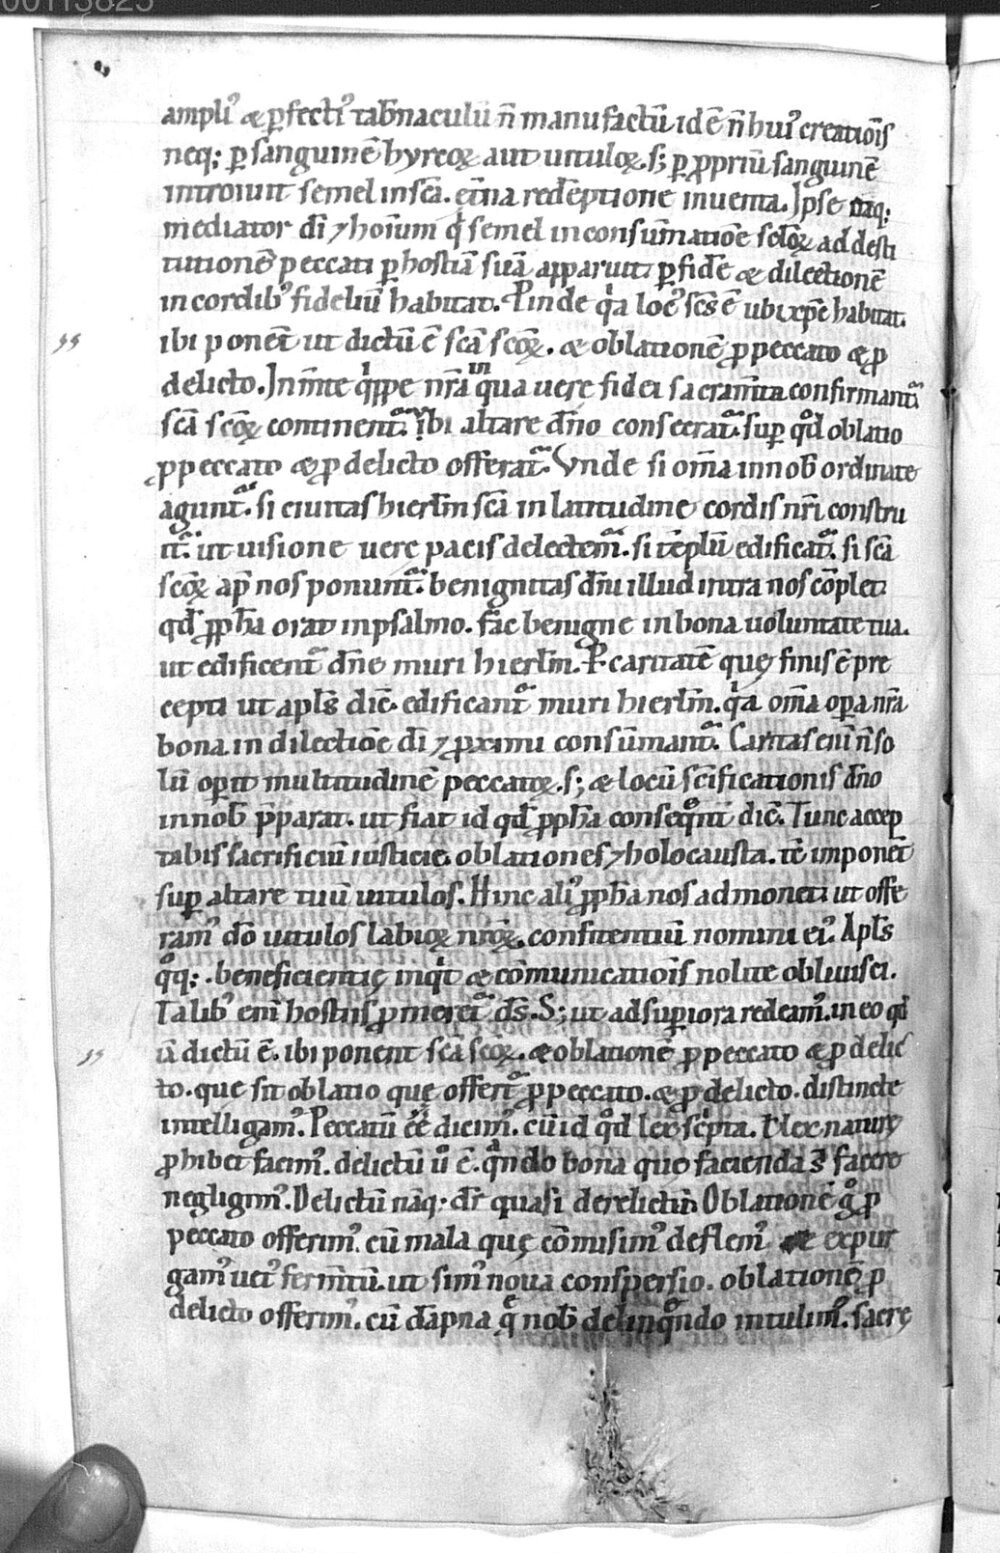 00113825
ampli᷒ & ꝑfecti᷒ tab̄naculū n̄ manufactū id ē n̄ hui᷒ creatiōis
neq; ꝑ sanguinē hyrcoꝝ aut uituloꝝ. s; ꝑ ꝓpriū sanguinē
introiuit semel in scā. et̄na redēptione inuenta. Ipse naq;
mediator dī ⁊ hoīum qͥ semel in consūmatiōe scl̄oꝝ ad desti
tutionē peccati ꝑ hostiā suā apparuit ꝑ fidē & dilectionē
in cordib᷒ fideliū habitat. Pinde qͥa loc᷒ scs̄ ē ubi xp̄c habitat.
ibi ponēt ut dictū ē scā scōꝝ. & oblationē ꝓ peccato & ꝓ
delicto. In m̄te qͥppe nr̄a in qua uere fidei sacram̄ta confirmant᷑
scā scōꝝ continent᷑. Ibi altare dn̄o consecrat᷑. suꝑ qd̄ oblatio
ꝓ peccato & ꝓ delicto offerat᷑. Vnde si om̄a in nob̄ ordinate
agunt᷑. si ciuitas hierl̄m scā in latitudine cordis nr̄i constru
it᷑. ut uisione uere pacis delectem᷑. si tēplū edificat᷑. si scā
scōꝝ ap̄ nos ponunt᷑. benignitas dn̄i illud intra nos cōplet
qd̄ ꝓph̄a orat in psalmo. fac benigne in bona uoluntate tua.
ut edificent᷑ dn̄e muri hierl̄m. P caritatē quę finis ē pre
cepti ut apl̄s dic̄ edificant᷑ muri hierl̄m. qͥa om̄a oꝑa nr̄a
bona in dilectiōe dī ⁊ ꝓximi consūmant᷑. Caritas eni n̄ so
lū oꝑit multitudinē peccatoꝝ. s; & locū sc̄ificationis dn̄o
in nob̄ p̄parat. ut fiat id qd̄ ꝓph̄a conseqn̄t dic̄. Tunc accep
tabis sacrificiū iusticię. oblationes ⁊ holocausta. tc̄ imponēt
suꝑ altare tuū uitulos. Hinc ali᷒ ꝓph̄a nos admonet ut offe
ram᷒ dō uitulos labioꝝ nr̄oꝝ. confitentiū nomini ei᷒. Apl̄s
qͦq;. beneficientię inqͥt & cōmunicatiōis nolite obliuisci.
Talib᷒ eni hostiis ꝓmeret᷑ ds̄. S; ut ad suꝑiora redeam᷒. in eo qd̄
iā dictū ē. ibi ponent scā scōꝝ. & oblationē ꝓ peccato & ꝓ delic
to. que sit oblatio quę offert᷑ ꝓ peccato. & ꝓ delicto. distincte
intelligam᷒. Peccatū ēē dicim᷒. cū id qd̄ lex scͥpta. t̄ lex naturę
ꝓhibet facim᷒. delictū u͛o ē. qn̄do bona quę facienda s̄ facere
negligim᷒. Delictū nāq; dr̄ quasi derelictū. Oblationē gͦ ꝓ
peccato offerim᷒. cū mala quę cōmisim᷒ deflem᷒ & expur
gam᷒ uet᷒ ferm̄tū. ut sim᷒ noua conspersio. oblationē ꝓ
delicto offerim᷒. cū dāpna q̄ nob̄ delinqͣndo intulim᷒. sacrę